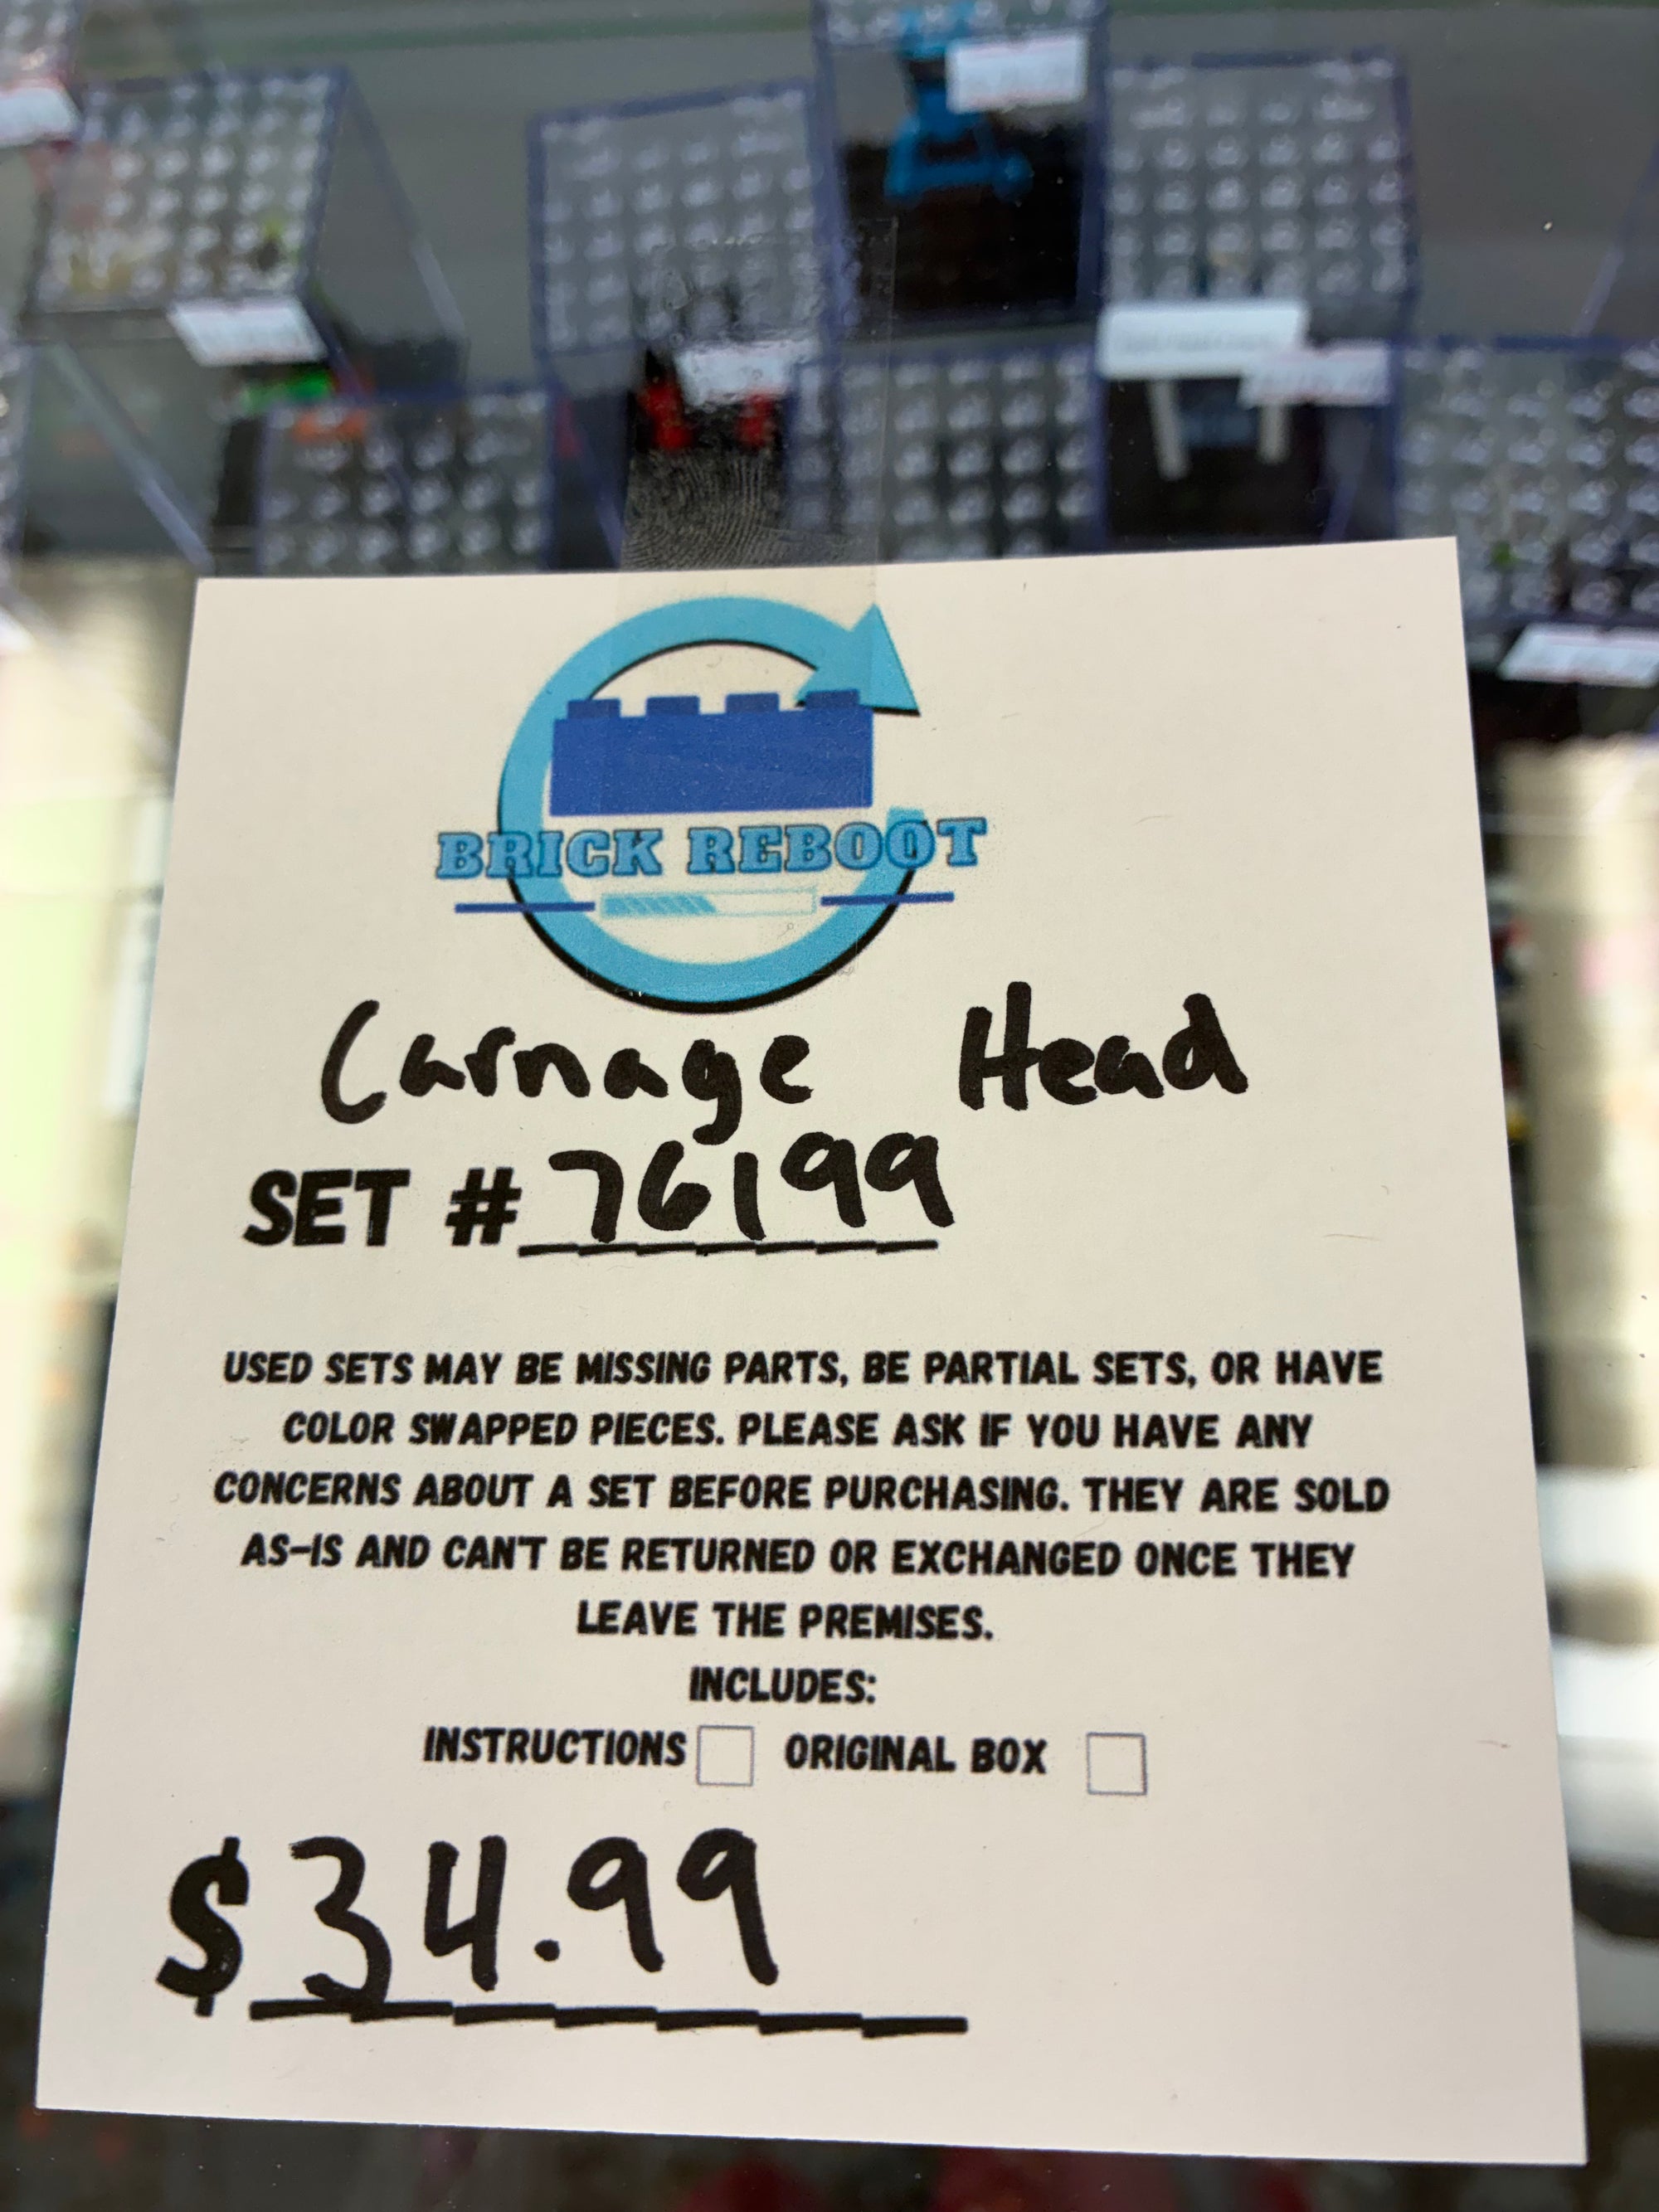 BRICK REBOOT
Carnage Head
SET # 76199
USED SETS MAY BE MISSING PARTS, BE PARTIAL SETS, OR HAVE
COLOR SWAPPED PIECES. PLEASE ASK IF YOU HAVE ANY
CONCERNS ABOUT A SET BEFORE PURCHASING. THEY ARE SOLD
AS-IS AND CAN'T BE RETURNED OR EXCHANGED ONCE THEY
LEAVE THE PREMISES.
INCLUDES:
INSTRUCTIONS ORIGINAL BOX
$34.99